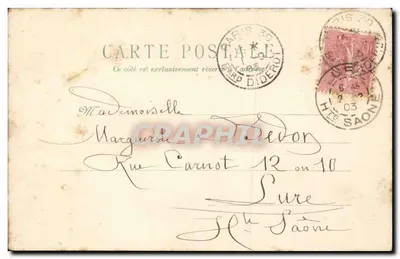 CARTE POSTALE
Ce côté est exclusivement réservé
PARIS 30
BARD DIDEROT
PARIS 30
03
Hte SAONE
CRAPHIL
Mademoiselle
Marguerite Devon
Rue Carnot 12 ou 10
Lure
Hte Saône